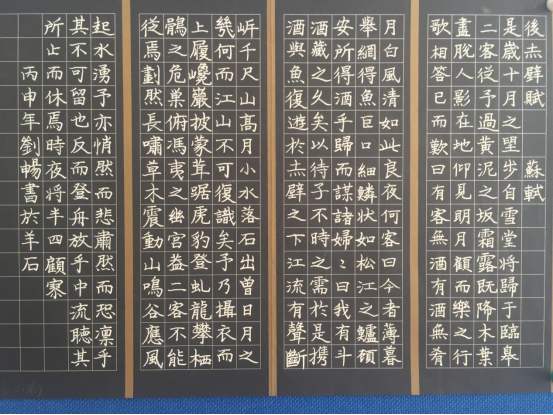 後赤壁賦 蘇軾
是歲十月之望步自雪堂將歸于臨皋
二客從予過黃泥之坂霜露既降木葉
盡脫人影在地仰見明月顧而樂之行
歌相答已而歎曰有客無酒有酒無肴
月白風清如此良夜何客曰今者薄暮
舉網得魚巨口細鱗狀如松江之鱸顧
安所得酒乎歸而謀諸婦〻曰我有斗
酒藏之久矣以待子不時之需於是攜
酒與魚復遊於赤壁之下江流有聲斷
岸千尺山高月小水落石出曾日月之
幾何而江山不可復識矣予乃攝衣而
上履巉巖披蒙茸踞虎豹登虬龍攀栖
鶻之危巢俯馮夷之幽宮蓋二客不能
從焉劃然長嘯草木震動山鳴谷應風
起水湧予亦悄然而悲肅然而恐凜乎
其不可留也反而登舟放乎中流聽其
所止而休焉時夜將半四顧寂
丙申年劉暢書於羊石